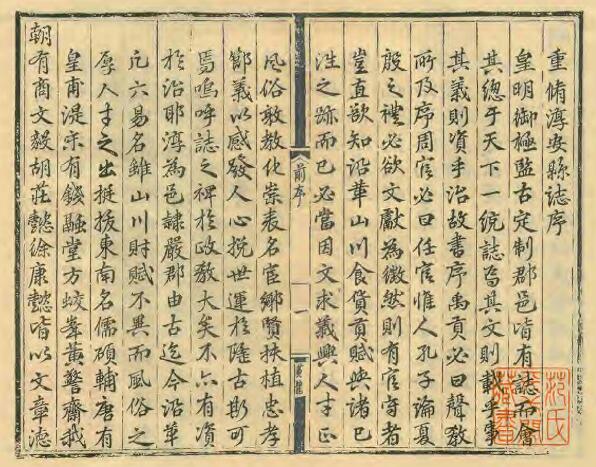 重脩淳安縣誌序
皇明御極監古定制郡邑皆有誌而會
其總于天下一統誌焉其文則載乎事
其義則資乎治故書序禹貢必曰聲敎
所及序周官必曰任官惟人孔子論夏
殷之禮必欲文獻為徵然則有官守者
豈直欲知沿華山川食貨貢賦與諸已
徃之跡而已必當因文求義興人才正
前序
一
風俗敦敎化崇表名宦鄉賢扶植忠孝
節義以感發人心挽世運於隆古斯可
焉嗚呼誌之裨於政敎大矣不亦有資
於治耶淳為邑隷嚴郡由古迄今沿華
凡六易名雖山川財賦不異而風俗之
厚人才之出挺拔東南名儒碩輔唐有
皇甫湜宋有錢融堂方蛟峯黃警齋我
朝有商文毅胡莊懿徐康懿皆以文章德
范氏
天一閣
藏書